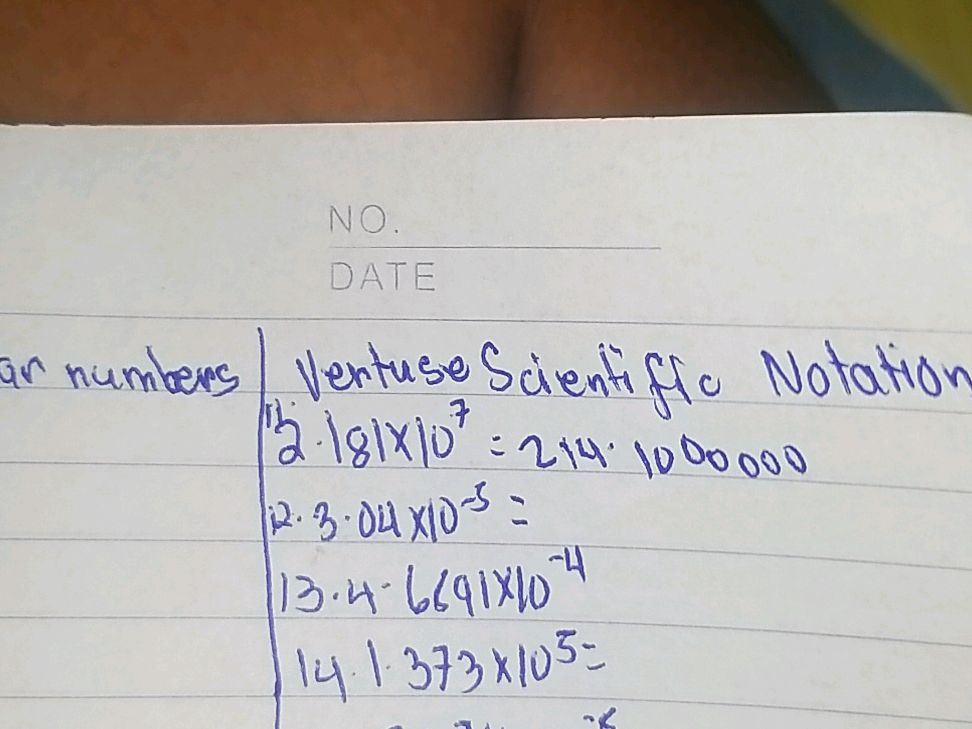 NO.
DATE
ar numbers | Vertuse Scientific Notation
11. 2.181×10^7 = 214.1000000
12. 3.04×10^-5 =
13. 4.6691×10^-4
14. 1.373×10^5 =